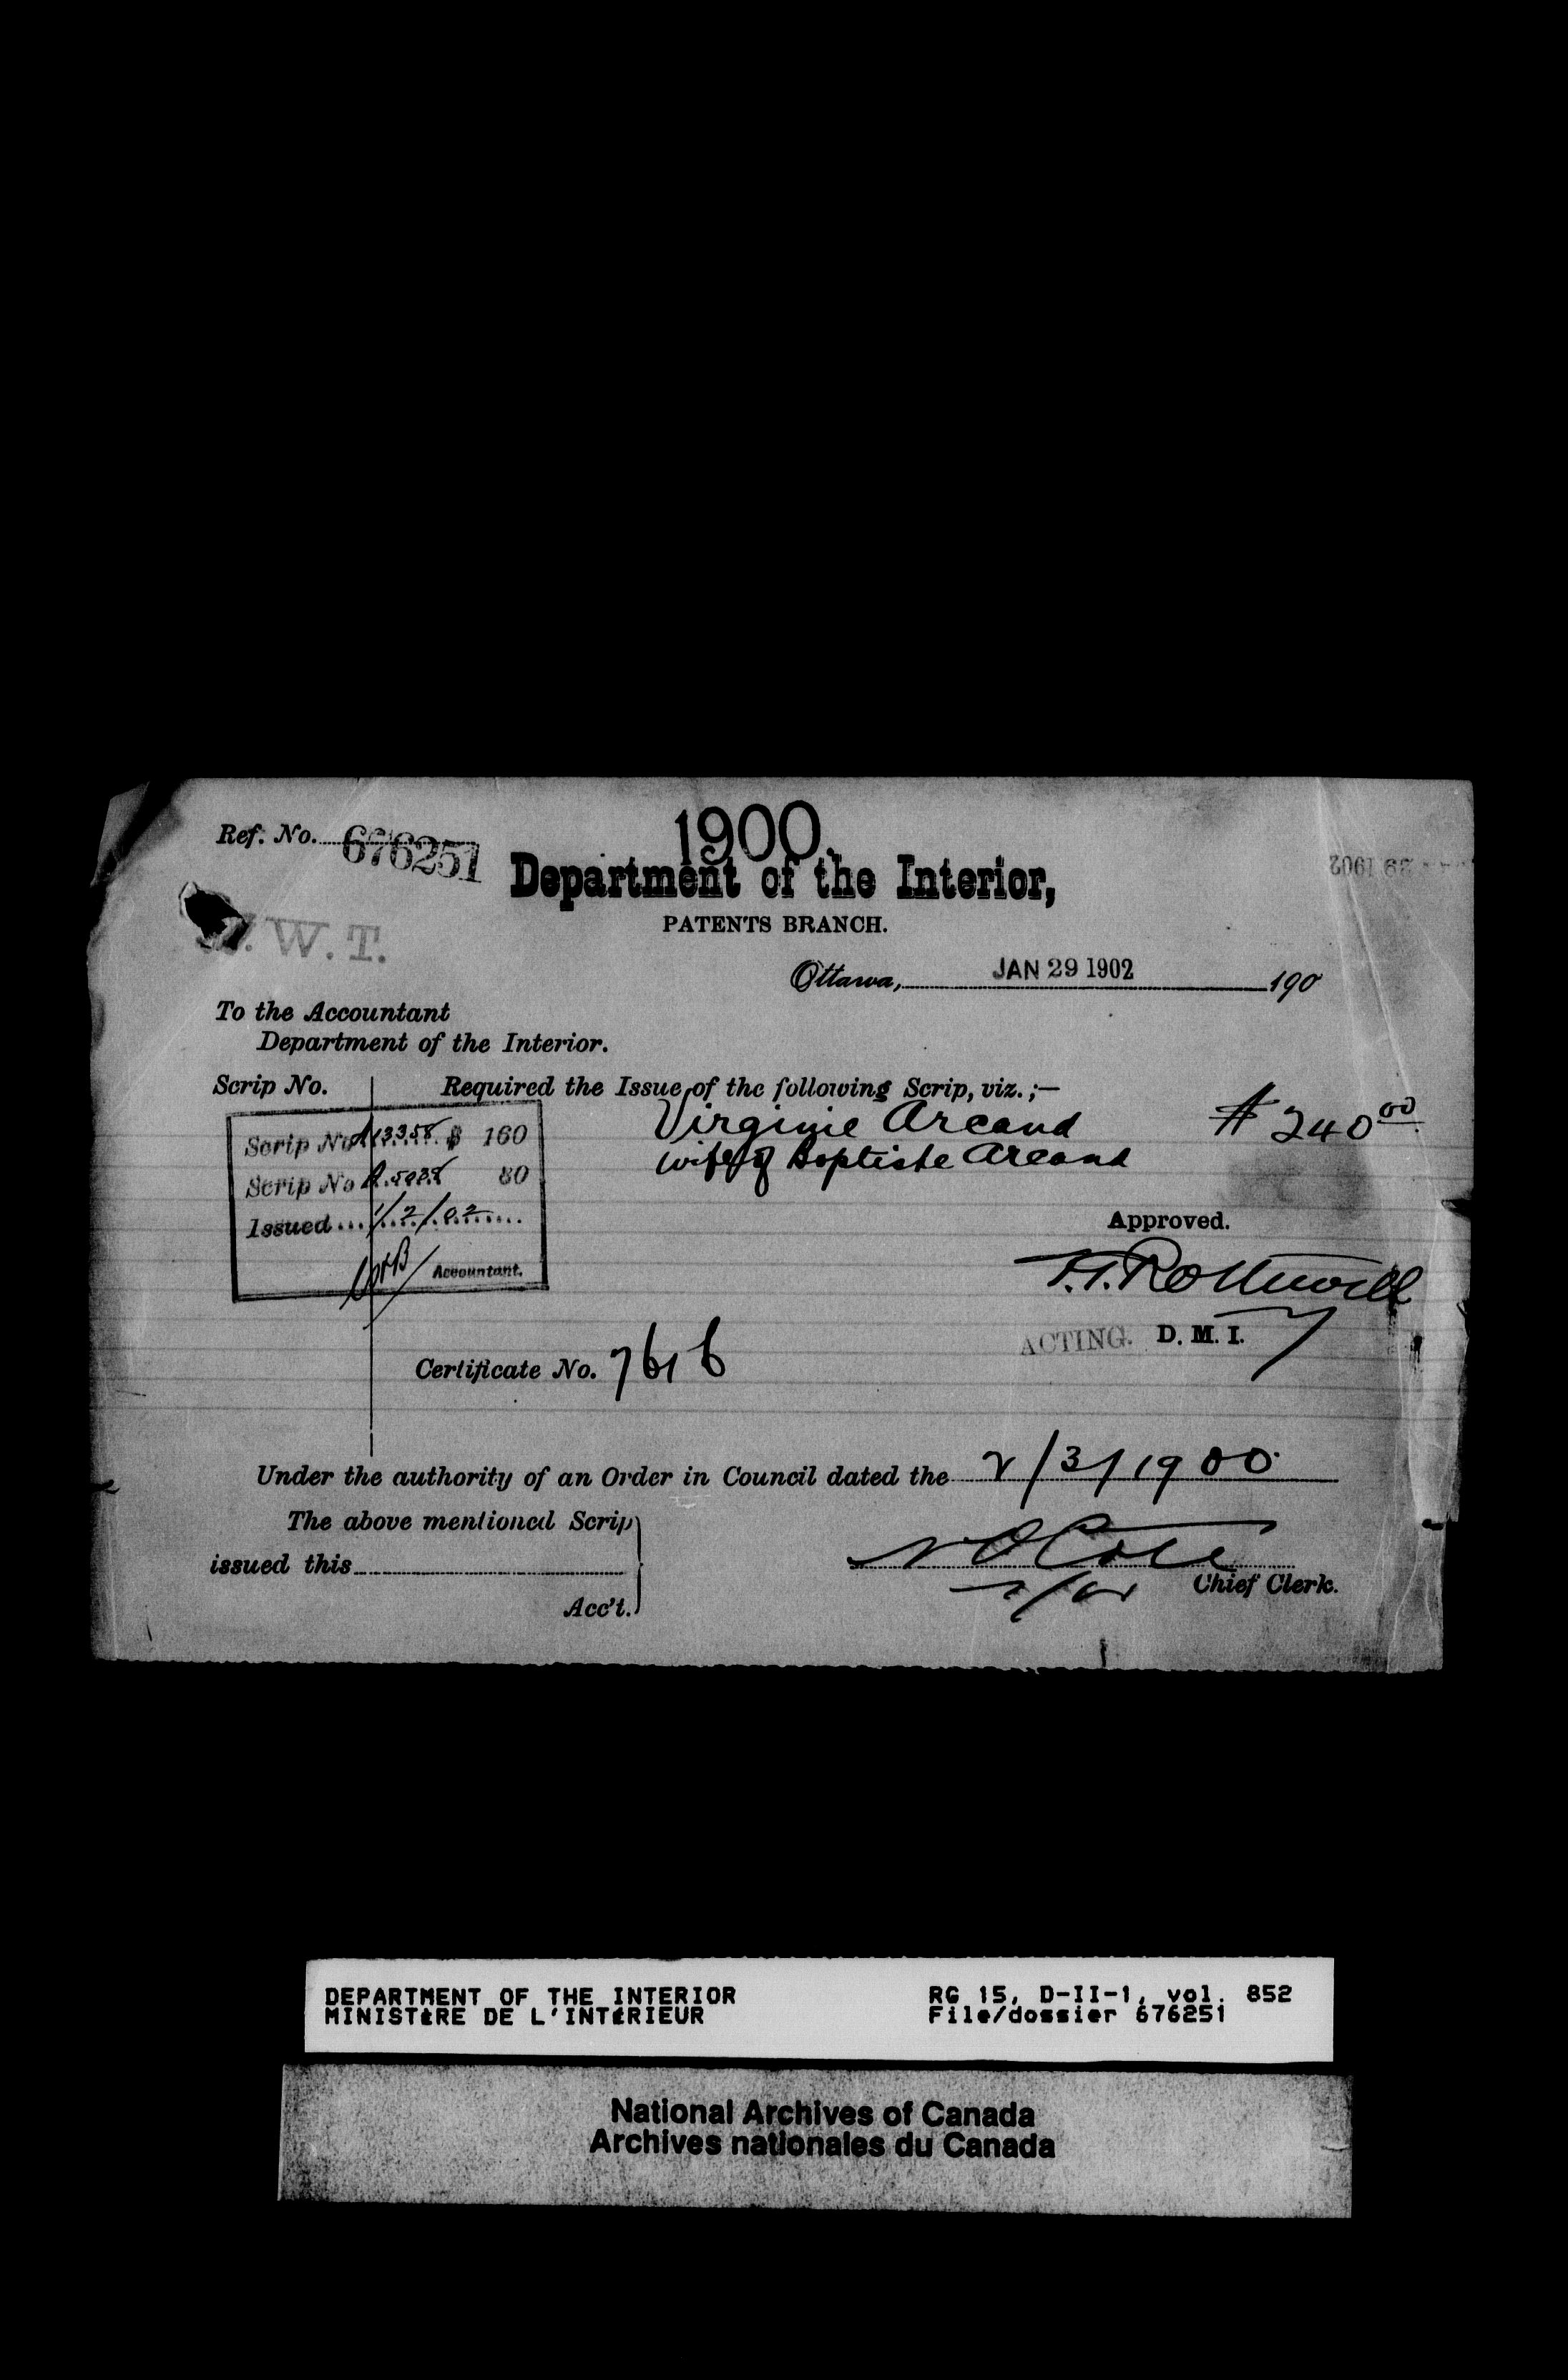 1900.
Ref. No. 676251
Department of the Interior,
PATENTS BRANCH.
W. T.
Ottawa, JAN 29 1902 190
To the Accountant
Department of the Interior.
Scrip No. Required the Issue of the following Scrip, viz.;—
Virginie Arcand # 240 00
wife of Baptiste Arcand
Scrip No A13358 $ 160
Scrip No 80
Issued 1/2/02
Accountant.
Approved.
ACTING. D. M. I.
Certificate No. 7616
Under the authority of an Order in Council dated the 2/3/1900
The above mentioned Scrip
issued this
N O Cote
Chief Clerk.
Acc't.
DEPARTMENT OF THE INTERIOR RG 15, D-II-1, vol. 852
MINISTÈRE DE L'INTÉRIEUR File/dossier 676251
National Archives of Canada
Archives nationales du Canada